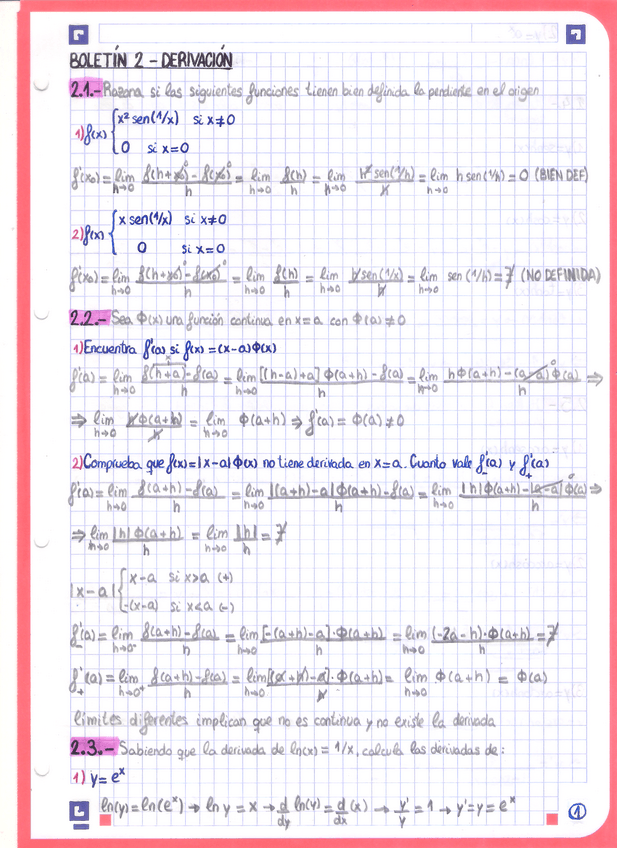 BOLETÍN 2 - DERIVACIÓN
2.1.- Razona si las siguientes funciones tienen bien definida la pendiente en el origen
1) f(x) { x² sen(1/x) si x≠0
0 si x=0
f'(x₀) = lim h→0 f(h+x₀)⁰ - f(x₀)⁰ / h = lim h→0 f(h)/h = lim h→0 h² sen(1/h)/h = lim h→0 h sen(1/h) = 0 (BIEN DEF)
2) f(x) { x sen(1/x) si x≠0
0 si x=0
f'(x₀) = lim h→0 f(h+x₀) - f(x₀)⁰ / h = lim h→0 f(h)/h = lim h→0 h sen(1/x)/h = lim h→0 sen(1/h) = ∄ (NO DEFINIDA)
2.2.- Sea Φ(x) una función continua en x=a con Φ(a)≠0
1) Encuentra f'(a) si f(x)=(x-a)Φ(x)
f'(a) = lim h→0 f(h+a) - f(a) / h = lim h→0 [(h-a)+a] Φ(a+h) - f(a) / h = lim h→0 hΦ(a+h) - (a-a)⁰Φ(a) / h ⇒
⇒ lim h→0 hΦ(a+h)/h = lim h→0 Φ(a+h) ⇒ f'(a) = Φ(a) ≠ 0
2) Comprueba que f(x)=|x-a|Φ(x) no tiene derivada en x=a. Cuanto vale f'₋(a) y f'₊(a)
f'(a) = lim h→0 f(a+h) - f(a) / h = lim h→0 |(a+h)-a| Φ(a+h) - f(a) / h = lim h→0 |h|Φ(a+h) - |a-a|⁰Φ(a) / h ⇒
⇒ lim h→0 |h| Φ(a+h) / h = lim h→0 |h|/h = ∄
|x-a| { x-a si x>a (+)
-(x-a) si x<a (-)
f'₋(a) = lim h→0⁻ f(a+h) - f(a) / h = lim h→0 [-(a+h)-a]·Φ(a+h) / h = lim h→0 (-2a-h)·Φ(a+h) / h = ∄
f'₊(a) = lim h→0⁺ f(a+h) - f(a) / h = lim h→0 [(a+h)-a]·Φ(a+h) / h = lim h→0 Φ(a+h) = Φ(a)
límites diferentes implican que no es continua y no existe la derivada
2.3.- Sabiendo que la derivada de ln(x) = 1/x, calcula las derivadas de:
1) y=eˣ
ln(y) = ln(eˣ) → ln y = x → d/dy ln(y) = d/dx (x) → y'/y = 1 → y'=y=eˣ
1